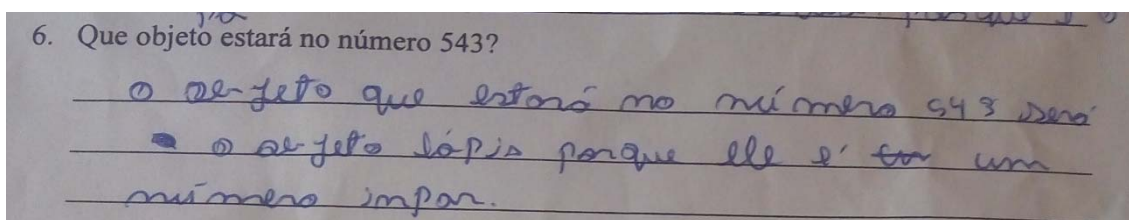 porque é o
6. Que objeto estará no número 543?
O objeto que estará no número 543 será
o objeto lápis porque ele é um
número impar.